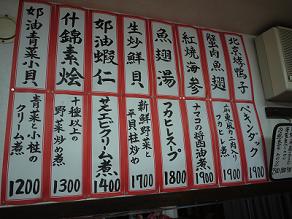 北京烤鴨子
ペキンダック
1900
蟹肉魚翅
1900
紅焼海参
ナマコの醤油煮
1900
魚翅湯
フカヒレスープ
1800
生炒鮮貝
新鮮野菜と
平貝柱炒め
1700
奶油蝦仁
芝エビクリーム煮
1400
什錦素烩
十種以上の
野菜炒め煮
1300
奶油青菜小貝
青菜と小柱の
クリーム煮
1200